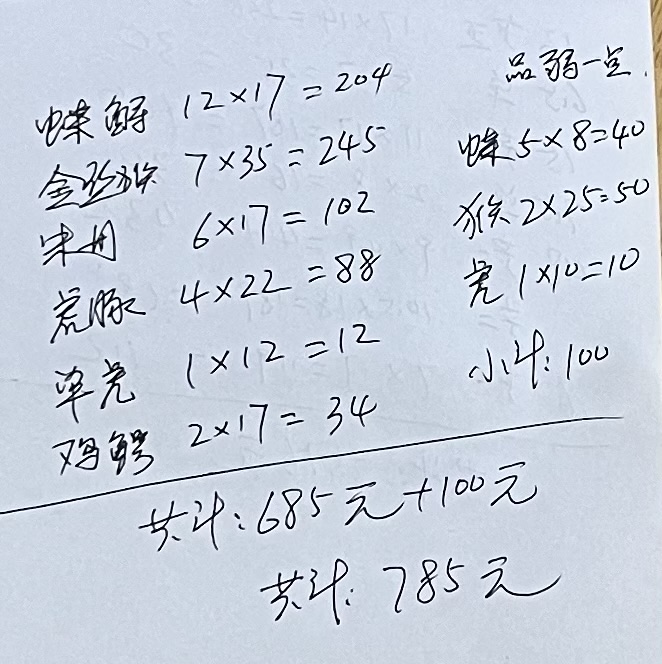 蝶鲟 12×17=204
金丝猴 7×35=245
朱月 6×17=102
虎豚 4×22=88
单虎 1×12=12
鸡鳄 2×17=34
品弱一点.
蝶 5×8=40
猴 2×25=50
虎 1×10=10
小计:100
共计:685元+100元
共计:785元